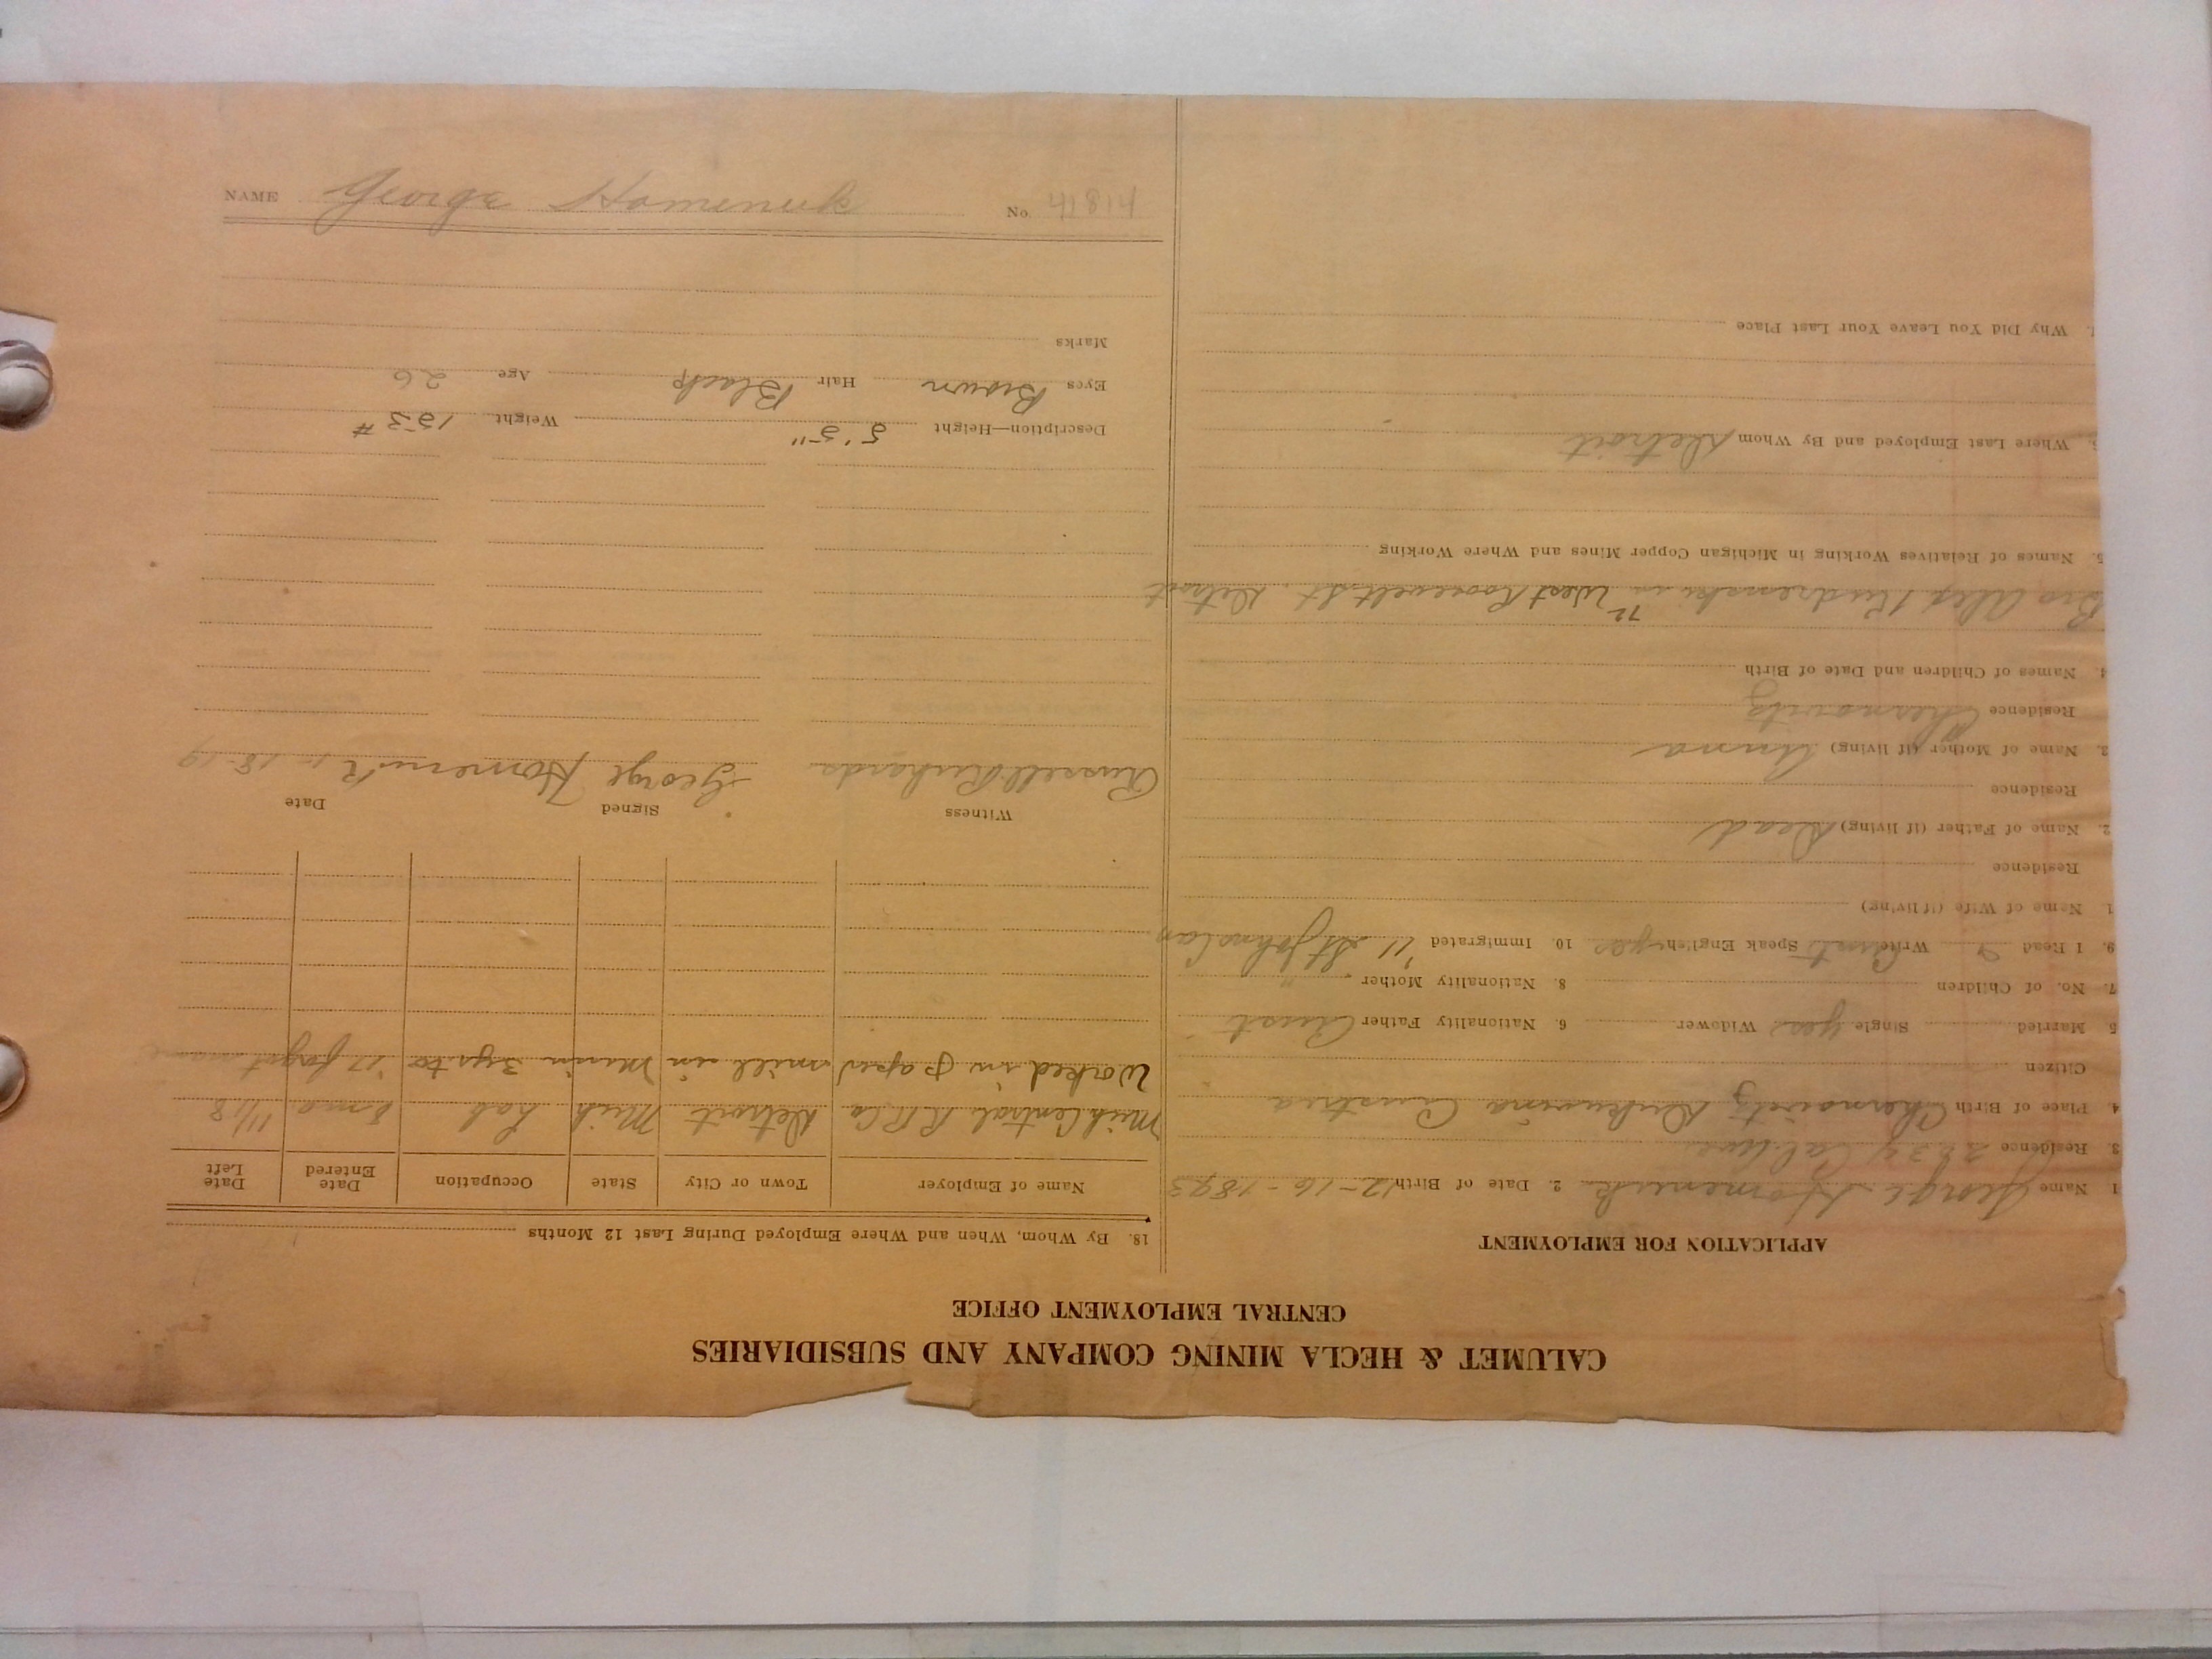 CALUMET & HECLA MINING COMPANY AND SUBSIDIARIES
CENTRAL EMPLOYMENT OFFICE
APPLICATION FOR EMPLOYMENT
1 Name George Homeniuk 2. Date of Birth 12-16-1893
3. Residence Cal. Ave.
4. Place of Birth Chernovitz Austria
Citizen
5 Married Single yes Widower 6. Nationality Father Aust
7. No. of Children 8. Nationality Mother "
9. I Read Write Speak English yes 10. Immigrated '11 St Johns Can
1. Name of Wife (if living)
Residence
2. Name of Father (if living) Dead
Residence
3. Name of Mother (if living) Anna
Residence Chernovitz
4. Names of Children and Date of Birth
Bro Alex 72 West Roosevelt St. Detroit
5. Names of Relatives Working in Michigan Copper Mines and Where Working
Where Last Employed and By Whom Detroit
Why Did You Leave Your Last Place
18. By Whom, When and Where Employed During Last 12 Months
Name of Employer Town or City State Occupation Date Entered Date Left
Mich Central R.R. Co Detroit Mich Lab 8 mo. 11/18
Worked in paper mill in Minn 3 yrs to '17 forgot name
Witness Signed Date
Russell Richards George Homeniuk 1-18-19
Description—Height 5'5" Weight 153 #
Eyes Brown Hair Black Age 26
Marks
NAME George Homeniuk No. 41814